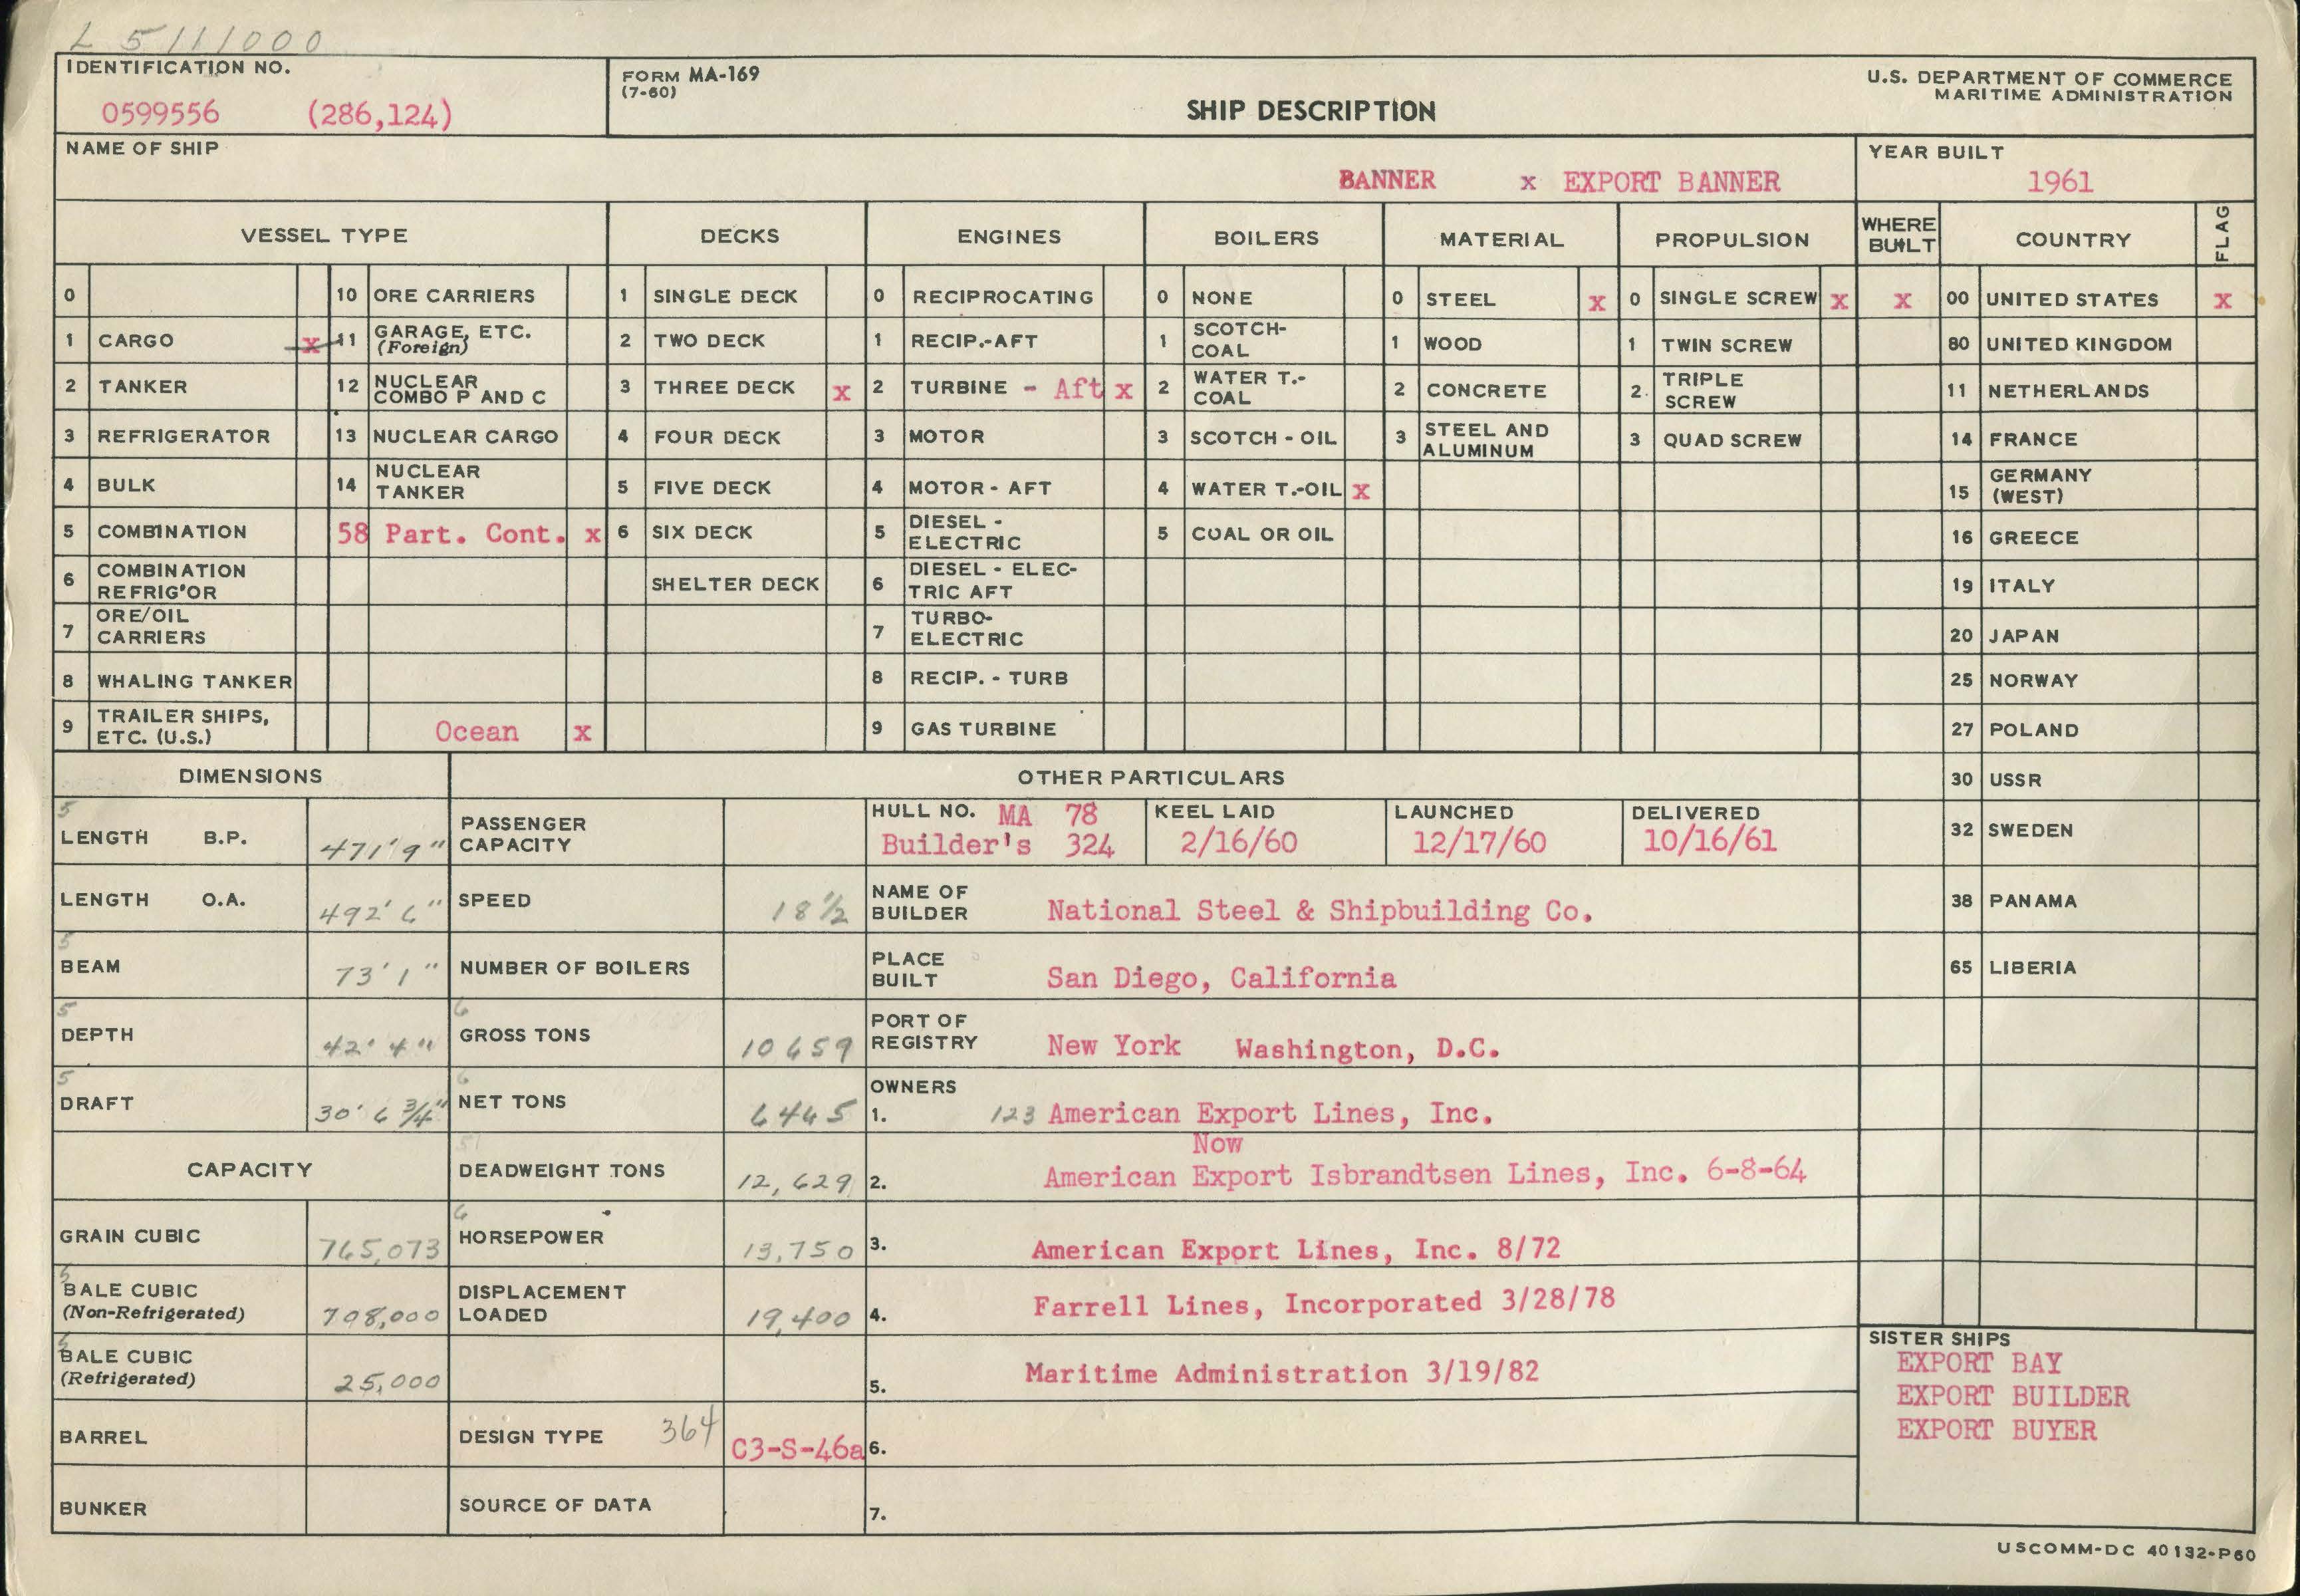 L 5111000
IDENTIFICATION NO.
0599556 (286,124)
FORM MA-169
(7-60)
SHIP DESCRIPTION
U.S. DEPARTMENT OF COMMERCE
MARITIME ADMINISTRATION
NAME OF SHIP
BANNER x EXPORT BANNER
YEAR BUILT
1961
VESSEL TYPE DECKS ENGINES BOILERS MATERIAL PROPULSION WHERE BUILT COUNTRY FLAG
0 10 ORE CARRIERS 1 SINGLE DECK 0 RECIPROCATING 0 NONE 0 STEEL x 0 SINGLE SCREW x x 00 UNITED STATES x
1 CARGO x 11 GARAGE, ETC. (Foreign) 2 TWO DECK 1 RECIP.-AFT 1 SCOTCH-COAL 1 WOOD 1 TWIN SCREW 80 UNITED KINGDOM
2 TANKER 12 NUCLEAR COMBO P AND C 3 THREE DECK x 2 TURBINE - Aft x 2 WATER T.-COAL 2 CONCRETE 2. TRIPLE SCREW 11 NETHERLANDS
3 REFRIGERATOR 13 NUCLEAR CARGO 4 FOUR DECK 3 MOTOR 3 SCOTCH - OIL 3 STEEL AND ALUMINUM 3 QUAD SCREW 14 FRANCE
4 BULK 14 NUCLEAR TANKER 5 FIVE DECK 4 MOTOR - AFT 4 WATER T.-OIL x 15 GERMANY (WEST)
5 COMBINATION 58 Part. Cont. x 6 SIX DECK 5 DIESEL - ELECTRIC 5 COAL OR OIL 16 GREECE
6 COMBINATION REFRIG'OR SHELTER DECK 6 DIESEL - ELECTRIC AFT 19 ITALY
7 ORE/OIL CARRIERS 7 TURBO-ELECTRIC 20 JAPAN
8 WHALING TANKER 8 RECIP. - TURB 25 NORWAY
9 TRAILER SHIPS, ETC. (U.S.) Ocean x 9 GAS TURBINE 27 POLAND
DIMENSIONS OTHER PARTICULARS 30 USSR
5
LENGTH B.P. 471'9" PASSENGER CAPACITY
HULL NO. MA 78
Builder's 324
KEEL LAID
2/16/60
LAUNCHED
12/17/60
DELIVERED
10/16/61
32 SWEDEN
LENGTH O.A. 492'6" SPEED 18½ NAME OF BUILDER National Steel & Shipbuilding Co. 38 PANAMA
5
BEAM 73'1" NUMBER OF BOILERS PLACE BUILT San Diego, California 65 LIBERIA
5 6
DEPTH 42'4" GROSS TONS 10659 PORT OF REGISTRY New York Washington, D.C.
5 6
DRAFT 30'6¾" NET TONS 6445 OWNERS
1. 123 American Export Lines, Inc.
Now
CAPACITY 5 DEADWEIGHT TONS 12,629 2. American Export Isbrandtsen Lines, Inc. 6-8-64
6
GRAIN CUBIC 765,073 HORSEPOWER 13,750 3. American Export Lines, Inc. 8/72
5
BALE CUBIC (Non-Refrigerated) 708,000 DISPLACEMENT LOADED 19,400 4. Farrell Lines, Incorporated 3/28/78
5
BALE CUBIC (Refrigerated) 25,000 5. Maritime Administration 3/19/82
BARREL DESIGN TYPE 364 C3-S-46a 6.
BUNKER SOURCE OF DATA 7.
SISTER SHIPS
EXPORT BAY
EXPORT BUILDER
EXPORT BUYER
USCOMM-DC 40132-P60